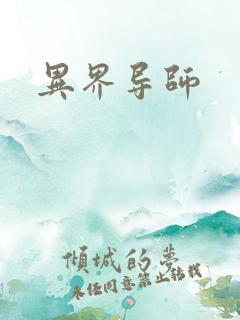 異界导師
傾城的夢
未经同意禁止转载